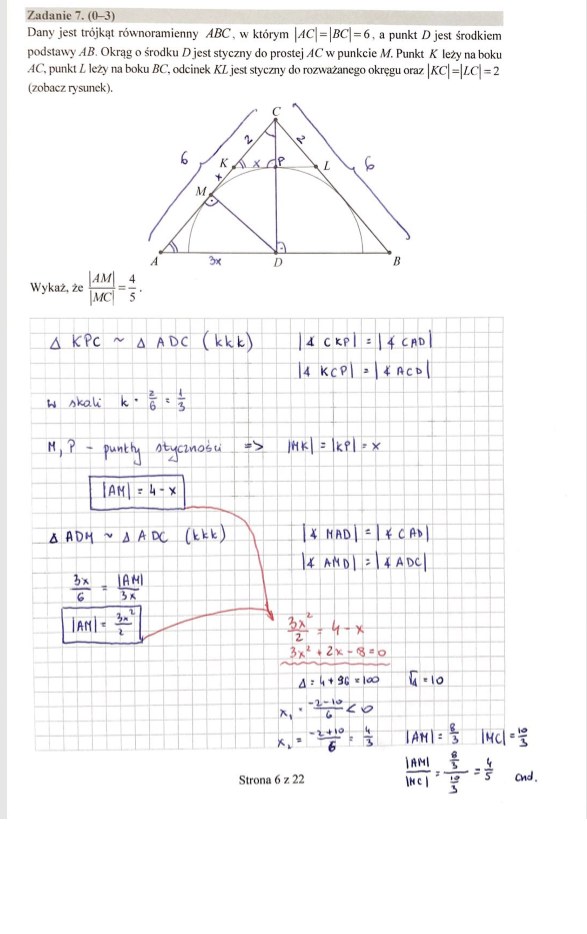 Zadanie 7. (0–3)
Dany jest trójkąt równoramienny ABC, w którym |AC|=|BC|=6, a punkt D jest środkiem
podstawy AB. Okrąg o środku D jest styczny do prostej AC w punkcie M. Punkt K leży na boku
AC, punkt L leży na boku BC, odcinek KL jest styczny do rozważanego okręgu oraz |KC|=|LC|=2
(zobacz rysunek).
C
2 2
6 K x P L 6
x
M
A 3x D B
Wykaż, że |AM|/|MC| = 4/5.
Δ KPC ~ Δ ADC (kkk) |∡ CKP| = |∡ CAD|
|∡ KCP| = |∡ ACD|
w skali k = 2/6 = 1/3
M, P - punkty styczności => |MK| = |KP| = x
|AM| = 4 - x
Δ ADM ~ Δ ADC (kkk) |∡ MAD| = |∡ CAD|
|∡ AMD| = |∡ ADC|
3x/6 = |AM|/3x
|AM| = 3x²/2
3x²/2 = 4 - x
3x² + 2x - 8 = 0
Δ = 4 + 96 = 100 √Δ = 10
x₁ = -2-10/6 < 0
x₂ = -2+10/6 = 4/3 |AM| = 8/3 |MC| = 10/3
|AM|/|MC| = 8/3/10/3 = 4/5 cnd.
Strona 6 z 22